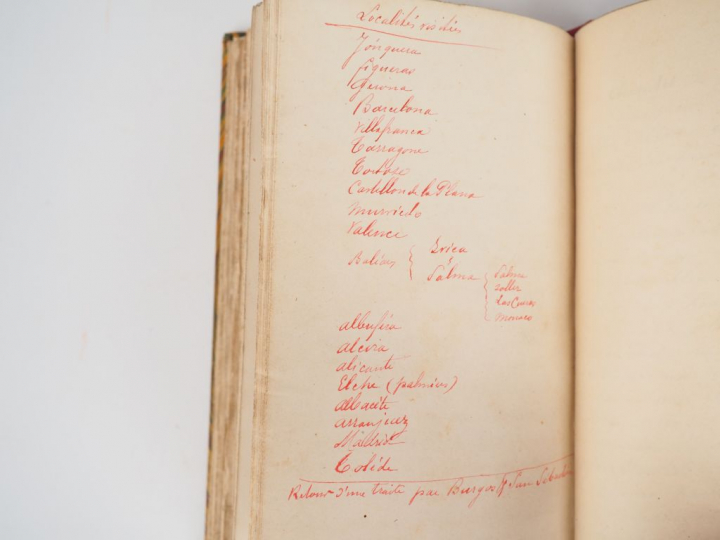 Localités visitées
Jonquera
figueras
Gerona
Barcelona
Villafranca
Tarragone
Tortose
Castellon de la Plana
Murviedo
Valence
Baléares { Iviça
Palma { Palma
Soller
Las Cuevas
albufera
alicante
Elche (palmiers)
albacete
arranjuez
Madrid
Tolède
Retour d'une traite par Burgos & San Sebastien